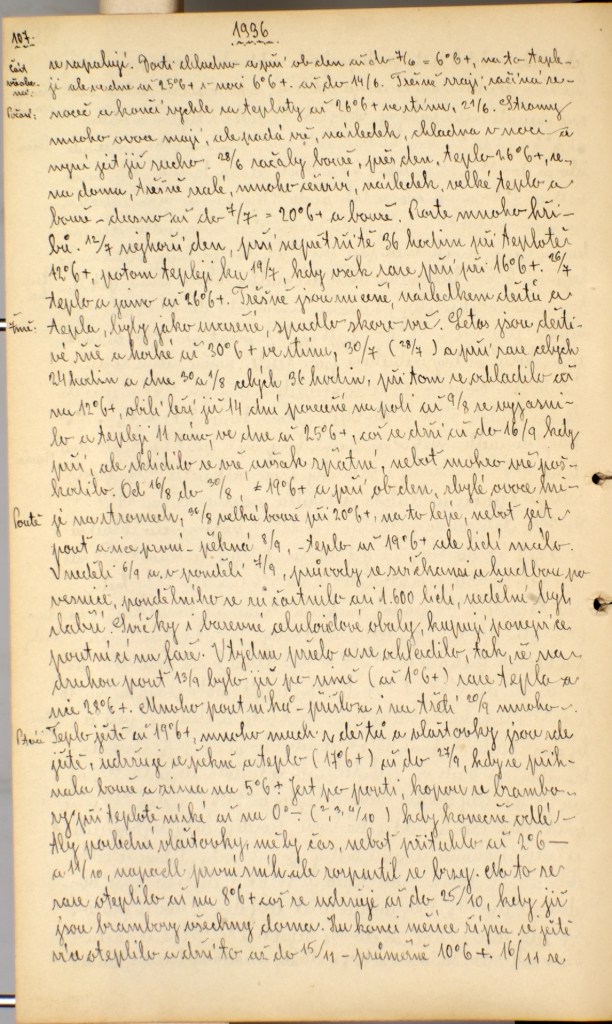 107.
1936
část všeobecná:
Počasí:
se zapalují. Dosti chladno a prší ob den až do 7/6 = 6°6+, na to tepleji
ale ve dne až 25°6+ v noci 6°6+. až do 14/6. Třešně zrají, začíná se
a končí rychle za teploty až 26°6+ ve stínu, 21/6. Stromy
mnoho ovoce mají, ale padá vše, následek, chladna v noci a
nyní jest již sucho. 28/6 začaly bouře, přes den, teplo 26°6+,
doma, třešně zralé, mnoho červiví, následek velké teplo a
bouře - dusno až do 7/7 = 20°6+ a bouře. Roste mnoho hři-
bů. 12/7 nejhorší den, prší nepřetržitě 36 hodin při teplotě
12°6+, potom tepleji ku 19/7, kdy však zase prší při 16°6+. 26/7
teplo a jasno až 26°6+. Třešně jsou ničené, následkem dešťů a
Žně:
tepla, byly jako spadlo skoro vše. Letos jsou dešti-
vé žně a horké až 30°6+ ve stínu, 30/7 (28/7) a prší zase celých
24 hodin a dne 30 a 1/8 celých 36 hodin, při tom se ochladilo až
na 12°6+, obilí leží již 14 dní posečené na poli až 9/8 se vyjasni-
lo a tepleji 11 ráno, ve dne až 25°6+, což se drží až do 16/9 kdy
prší, ale sklidilo se vše avšak špatně, neboť mokro vše poš-
kodilo. Od 16/8 do 30/8, = 19°6+ a prší ob den, zbylé ovoce hni-
Poutě
je na stromech, 30/8 velká bouře při 20°6+, na to lépe, neboť jest
pouť a sice první - pěkná 8/9, - teplo až 19°6+ ale lidí málo.
V neděli 6/9 a v pondělí 7/9, průvody se svíčkami a hudbou po
vesnici, pondělního se zúčastnilo asi 1.600 lidí, nedělní byl
slabší. Svíčky i barevné celuloidové obaly, kupují ponejvíce
poutníci na faře. V týdnu pršelo a se ochladilo, tak, že na
druhou pouť 13/9 bylo již po zimě (až 1°6+) zase teplo
28°6+. Mnoho poutníků - přišlo i na třetí 20/9 mnoho -.
Ptáci
Teplo ještě až 19°6+, mnoho much z dešťů a vlaštovky jsou zde
ještě, udržuje se pěkně a teplo (17°6+) až do 27/9, kdy se přih-
nala bouře a zima na 5°6+ Jest po pouti, kopou se brambo-
ry při teplotě nízké až na 0°÷ (2, 3, 4/10) kdy konečně odlé-
tly poslední vlaštovky, měly čas, neboť přituhlo až 2°6 —
a 11/10, napadl první sníh ale rozpustil se brzy. Na to se
zase oteplilo až na 8°6+ což se udržuje až do 25/10, kdy již
jsou brambory všechny doma. Ku konci měsíce října se ještě
více oteplilo a drží to až do 15/11 - průměrně 10°6+. 16/11 se